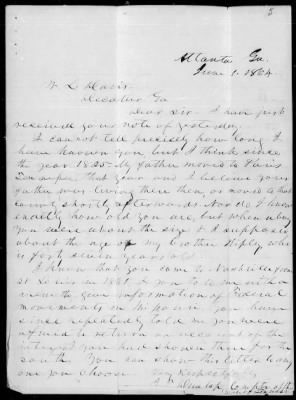 Atlanta Ga.
June 1. 1864.
W L Davis
Decatur Ga
Dear Sir. I have just
received your note of yesterday.
I can not tell precisely how long I
have known you but I think since
the year 1825. My father moved to Paris
that year and I believe your
father was living there then, or moved to that
county shortly afterwards. Nor do I know
exactly how old you are, but when a boy
you were about the size & I suppose
about the age of my brother Ripley who
is forty seven years old
I know that you came to Nashville from
St Louis in 1861. you to me with a
view to give information of Federal
movements in Missouri. you have
since repeatedly told me you were
afraid to return on account of the
interest you had shown there for the
South. You can show this letter to any
one you choose
Very Respectfully
Dunlap Comptroller